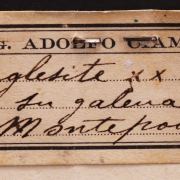 G. ADOLFO CIAM
glesite xx
su galena
Montepon